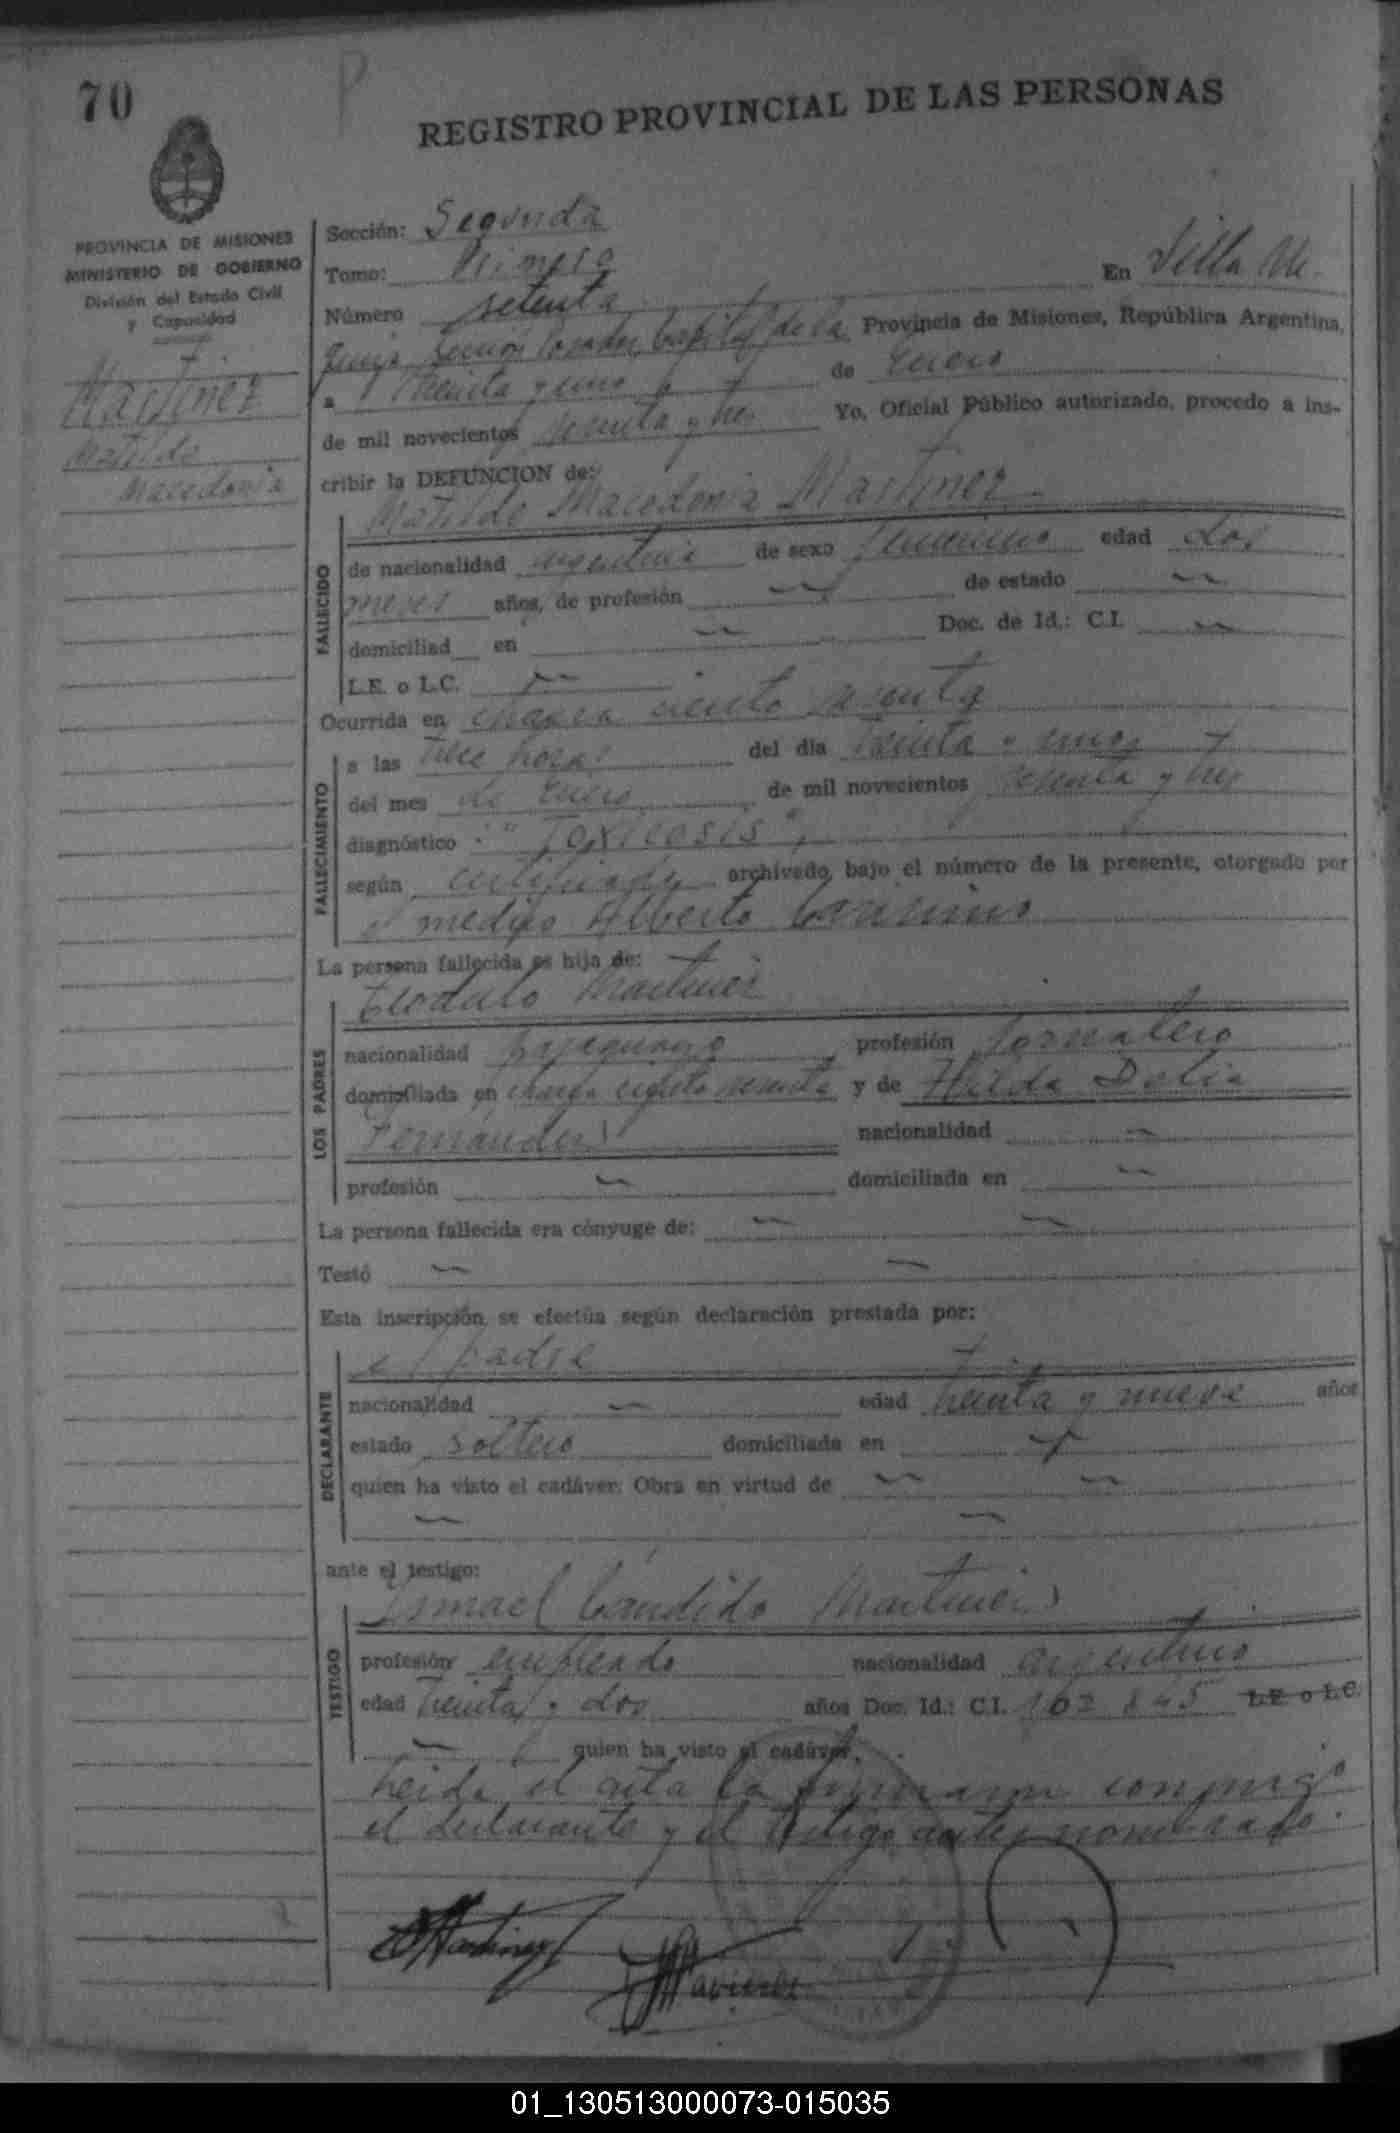 70
P
REGISTRO PROVINCIAL DE LAS PERSONAS
PROVINCIA DE MISIONES
MINISTERIO DE GOBIERNO
División del Estado Civil
y Capacidad
Martinez
Matilde
Macedonia
Sección: Segunda
Tomo: Primero
En Villa Ur
Número setenta
quiza Capital de la Provincia de Misiones, República Argentina,
a Treinta y uno de Enero
de mil novecientos setenta y tres Yo, Oficial Público autorizado, procedo a ins-
cribir la DEFUNCION de:
Matilde Macedonia Martinez
FALLECIDO
de nacionalidad argentina de sexo femenino edad dos
meses años, de profesión de estado
domiciliad en Doc. de Id.: C.I.
L.E. o L.C.
Ocurrida en chacra ciento
FALLECIMIENTO
a las Trece horas del día Treinta y uno
del mes de Enero de mil novecientos setenta y tres
diagnóstico: "Toxicosis",
según certificado archivado, bajo el número de la presente, otorgado por
el medico Alberto
La persona fallecida es hija de:
Martinez
LOS PADRES
nacionalidad paraguayo profesión Jornalero
domiciliada en chacra ciento y de Hilda Delia
Fernandez
nacionalidad
profesión domiciliada en
La persona fallecida era cónyuge de:
Testó
Esta inscripción se efectúa según declaración prestada por:
el padre
DECLARANTE
nacionalidad edad treinta y nueve años
estado soltero domiciliada en
quien ha visto el cadáver. Obra en virtud de
ante el testigo:
Ismael Candido Martinez
TESTIGO
profesión empleado nacionalidad argentino
edad treinta y dos años Doc. Id.: C.I. 102 845 L.E. o L.C.
quien ha visto el cadáver.
Leida el acta la firmaron conmigo
el declarante y el testigo antes nombrado.
Martinez
01_130513000073-015035